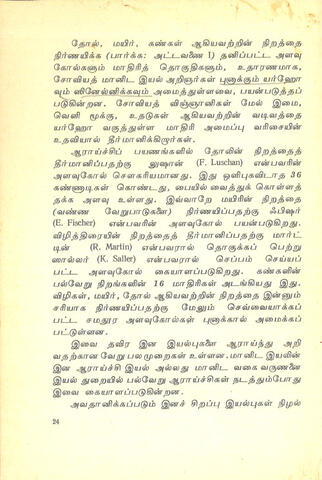 தோல், மயிர், கண்கள் ஆகியவற்றின் நிறத்தை
நிர்ணயிக்க (பார்க்க: அட்டவணை 1) தனிப்பட்ட அளவு
கோல்களும் மாதிரித் தொகுதிகளும், உதாரணமாக,
சோவியத் மானிட இயல் அறிஞர்கள் புனாக்கும் யர்ஹோ
வும் ஸினேல்னிக்கவும் அமைத்துள்ளவை, பயன்படுத்தப்
படுகின்றன. சோவியத் விஞ்ஞானிகள் மேல் இமை,
வெளி மூக்கு, உதடுகள் ஆகியவற்றின் வடிவத்தை
யர்ஹோ வகுத்துள்ள மாதிரி அமைப்பு வரிசையின்
உதவியால் தீர்மானிக்கிறார்கள்.
ஆராய்ச்சிப் பயணங்களில் தோலின் நிறத்தைத்
தீர்மானிப்பதற்கு லுஷான் (F. Luschan) என்பவரின்
அளவுகோல் சௌகரியமானது. இது ஒளிபுகவிடாத 36
கண்ணாடிகள் கொண்டது, பையில் வைத்துக் கொள்ளத்
தக்க அளவு உள்ளது. இவ்வாறே மயிரின் நிறத்தை
(வண்ண வேறுபாடுகளை) நிர்ணயிப்பதற்கு ஃபிஷர்
(E. Fischer) என்பவரின் அளவுகோல் பயன்படுகிறது.
விழித்திரையின் நிறத்தைத் தீர்மானிப்பதற்கு மார்ட்
டின் (R. Martin) என்பவரால் தொகுக்கப் பெற்று
ஸால்லர் (K. Saller) என்பவரால் செப்பம் செய்யப்
பட்ட அளவுகோல் கையாளப்படுகிறது. கண்களின்
பல்வேறு நிறங்களின் 16 மாதிரிகள் அடங்கியது இது.
விழிகள், மயிர், தோல் ஆகியவற்றின் நிறத்தை இன்னும்
சரியாக நிர்ணயிப்பதற்கு மேலும் செவ்வையாக்கப்
பட்ட சமதூர அளவுகோல்கள் புனாக்கால் அமைக்கப்
பட்டுள்ளன.
இவை தவிர இன இயல்புகளை ஆராய்ந்து அறி
வதற்கான வேறு பல முறைகள் உள்ளன. மானிட இயலின்
இன ஆராய்ச்சி இயல் அல்லது மானிட வகை வருணனை
இயல் துறையில் பல்வேறு ஆராய்ச்சிகள் நடத்தும்போது
இவை கையாளப்படுகின்றன.
அவதானிக்கப்படும் இனச் சிறப்பு இயல்புகள் நிழல்
24